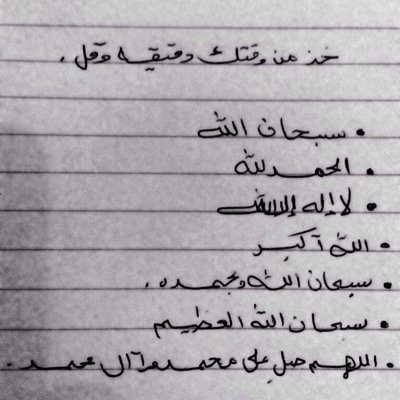 خذ من وقتك دقيقه وقل .
• سبحان الله
• الحمد لله
• لا إله إلا الله
• الله أكبر
• سبحان الله وبحمده .
• سبحان الله العظيم
• اللهم صل على محمد وآل محمد .